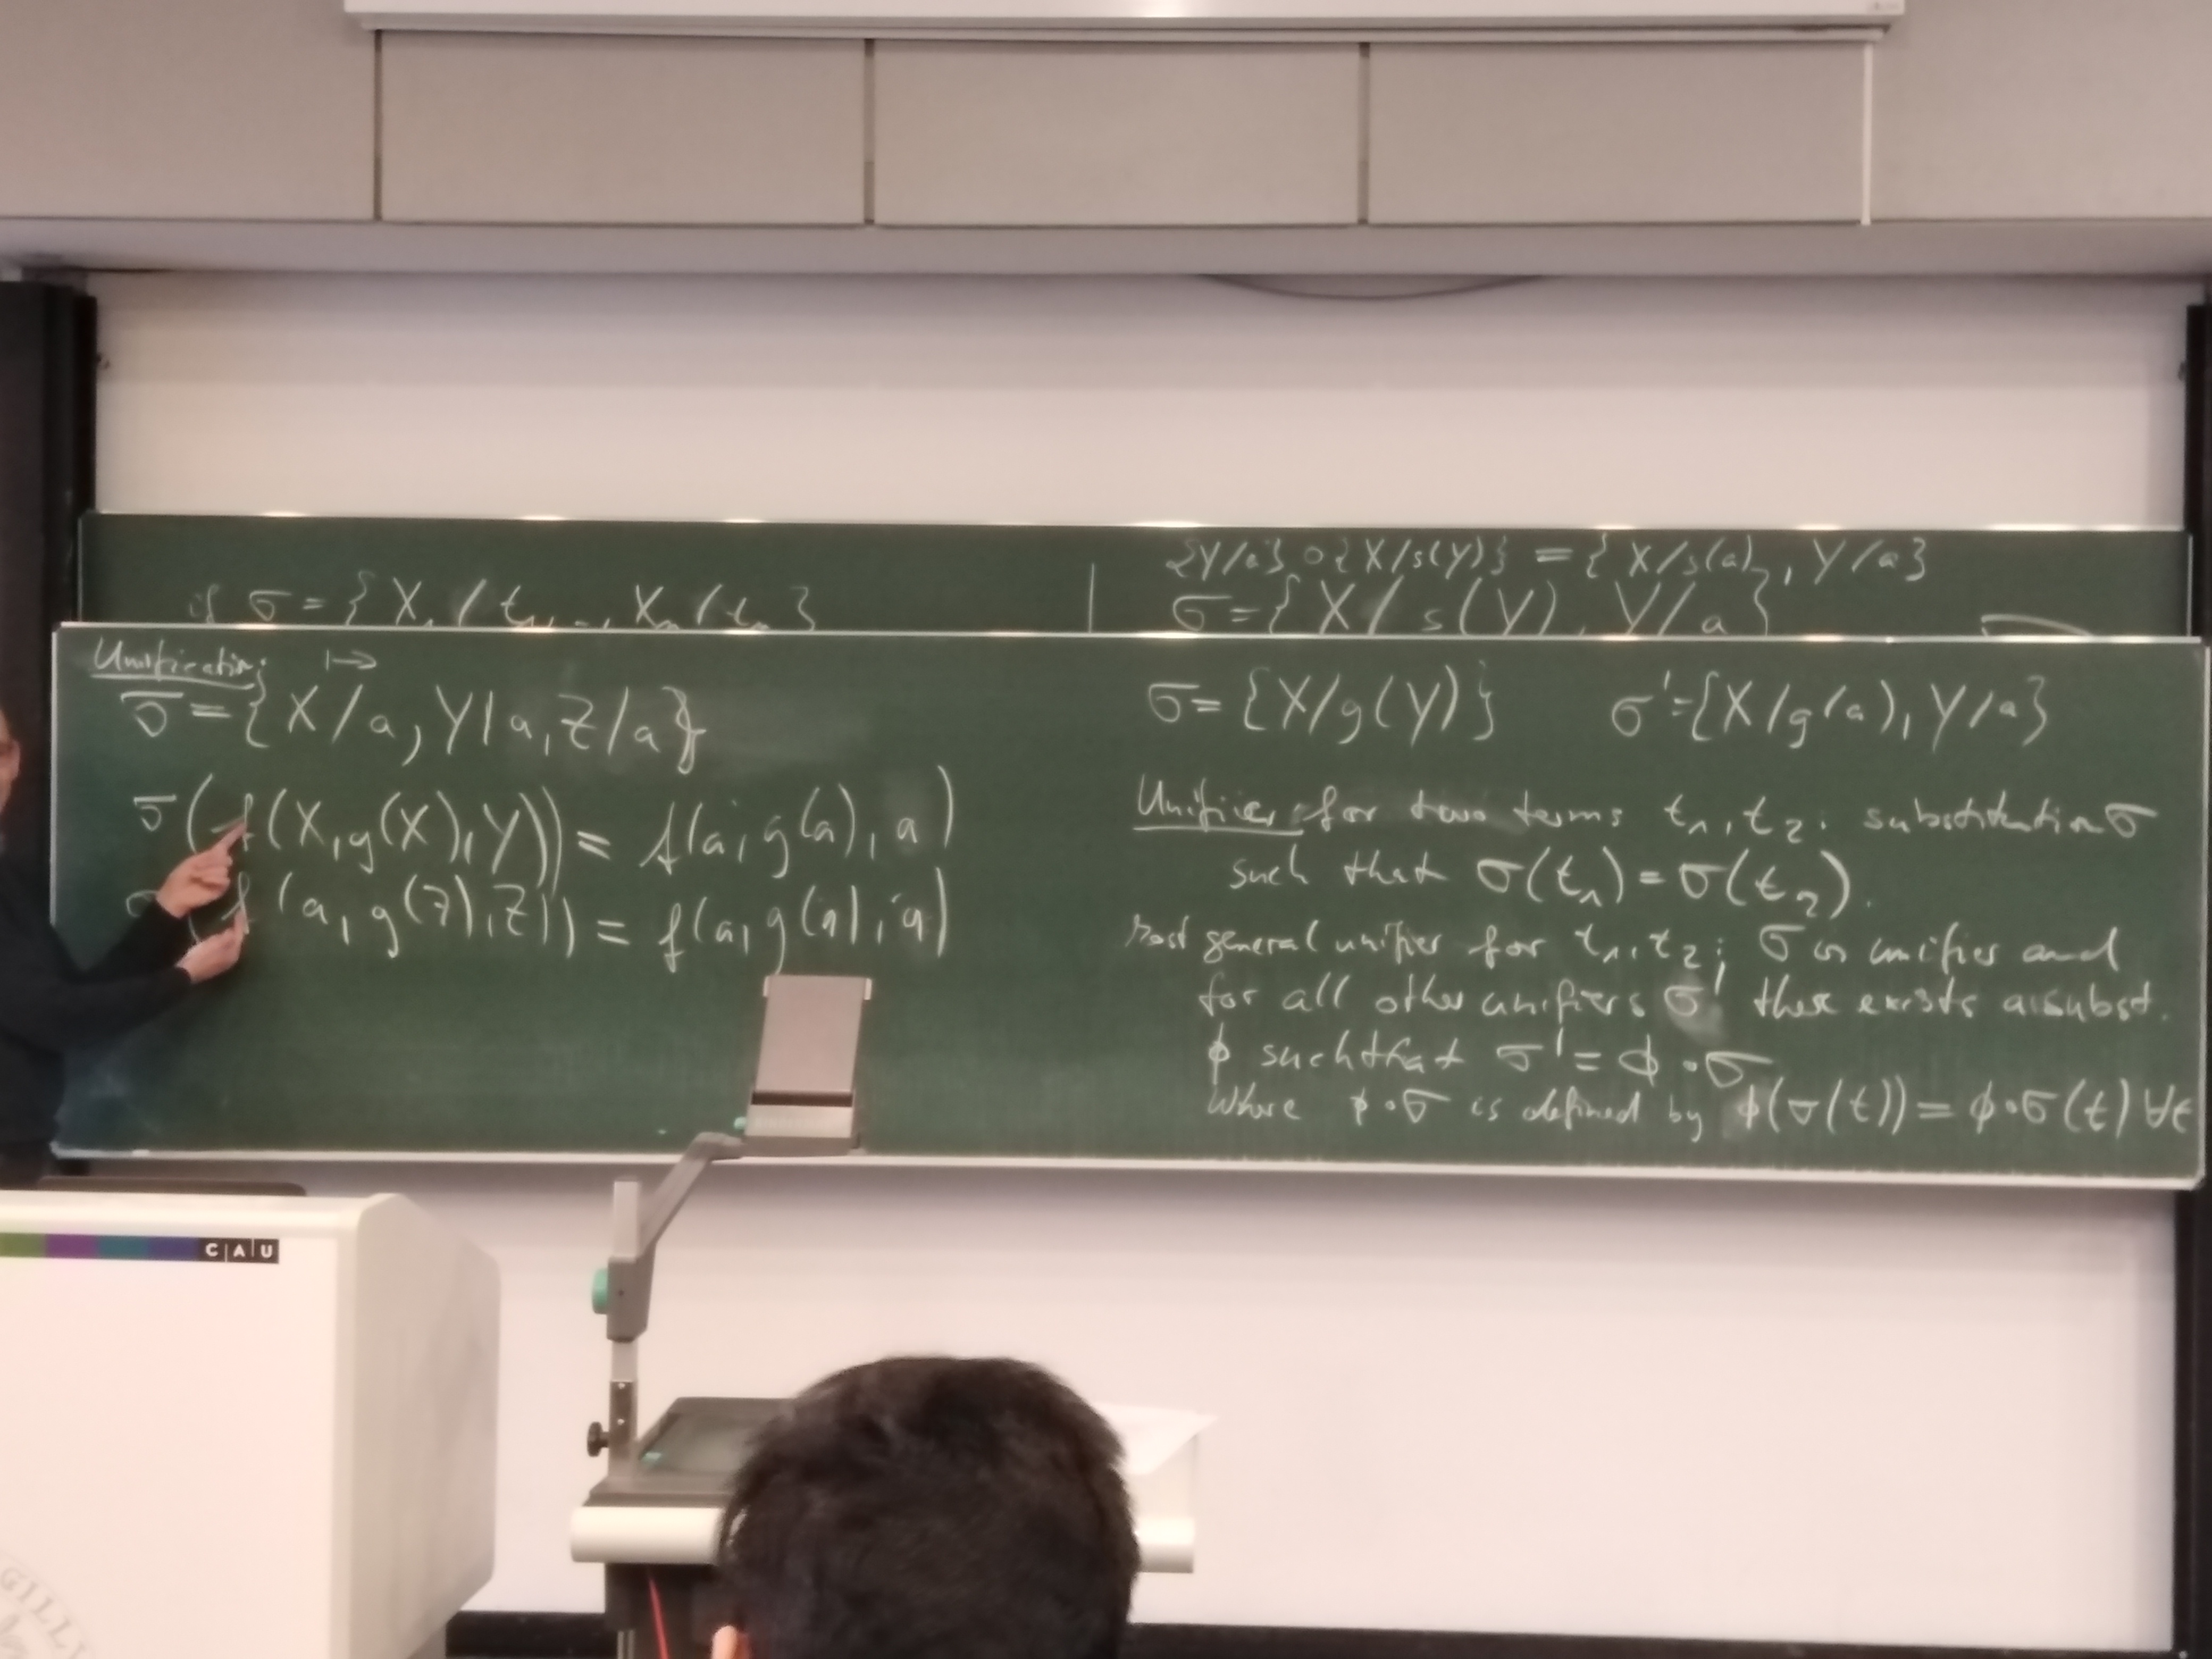 {Y/a} ∘ {X/s(Y)} = {X/s(a), Y/a}
if σ = {X₁/t₁, ..., Xₙ/tₙ}
σ = {X/s(Y), Y/a}
Unification: ↦
σ = {X/a, Y/a, Z/a}
σ(f(X, g(X), Y)) = f(a, g(a), a)
σ(f(a, g(Z), Z)) = f(a, g(a), a)
σ = {X/g(Y)} σ' = {X/g(a), Y/a}
Unifier for two terms t₁, t₂: substitution σ
such that σ(t₁) = σ(t₂).
Most general unifier for t₁, t₂: σ is unifier and
for all other unifiers σ' there exists a subst.
ϕ such that σ' = ϕ∘σ
where ϕ∘σ is defined by ϕ(σ(t)) = ϕ∘σ(t) ∀t
CAU